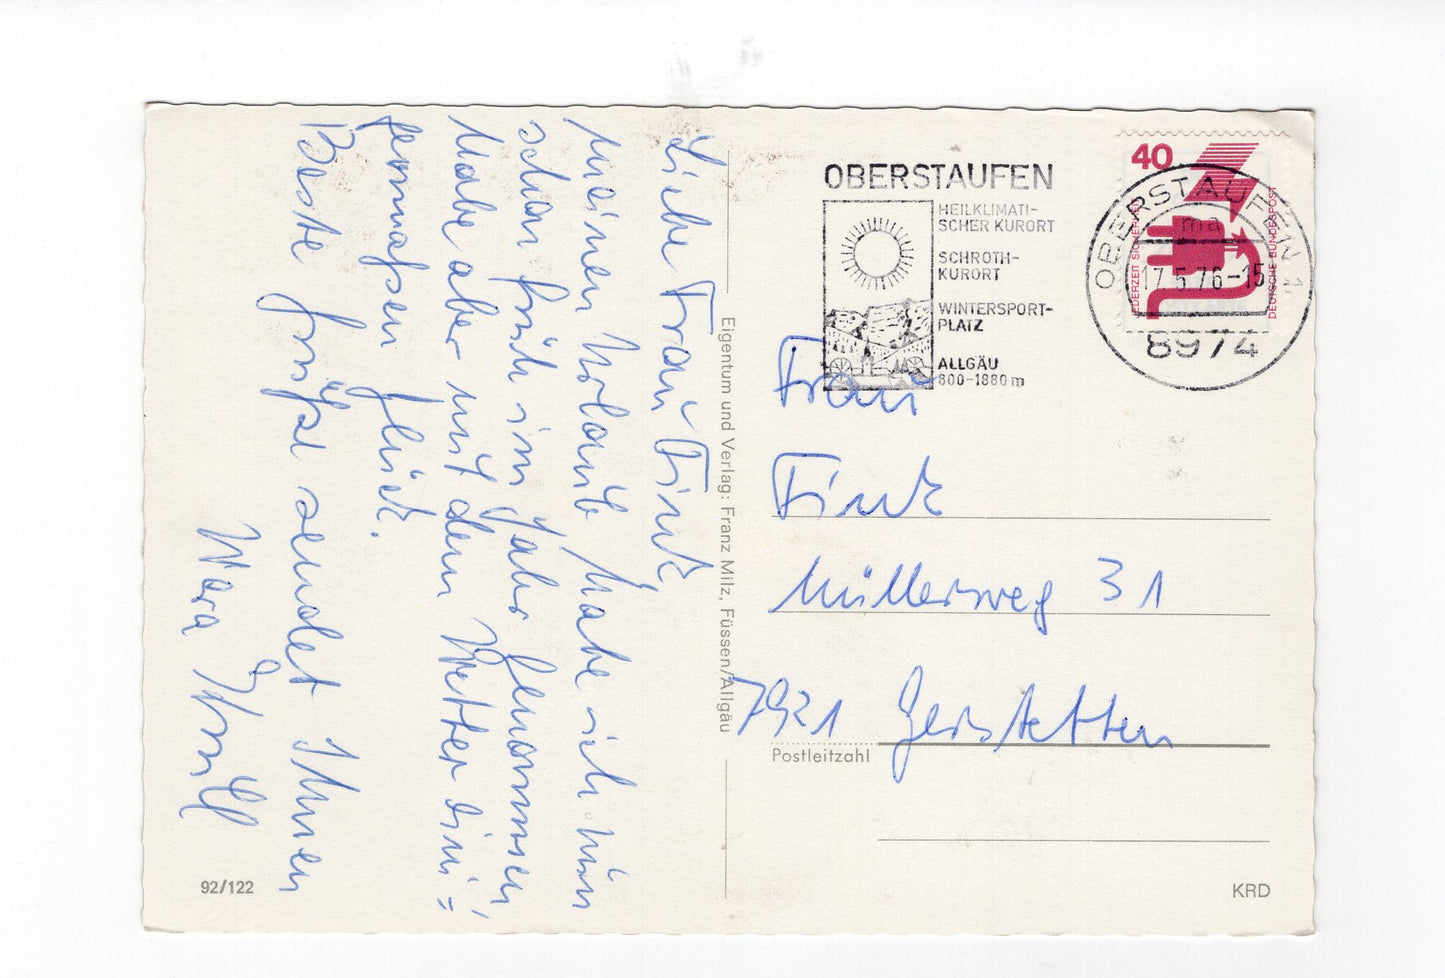 Liebe Frau Fink
Meinen Urlaub habe ich nun
schon früh im Jahr genommen,
habe aber mit dem Wetter eini=
germaßen Glück.
Beste Grüße sendet Ihnen
OBERSTAUFEN
HEILKLIMATI-
SCHER KURORT
SCHROTH-
KURORT
WINTERSPORT-
PLATZ
ALLGÄU
800-1880 m
40
JEDERZEIT SICHERHEIT
DEUTSCHE BUNDESPOST
OBERSTAUFEN 1
ma
17.5.76-15
8974
Eigentum und Verlag: Franz Milz, Füssen/Allgäu
Frau
Fink
Müllersweg 31
7921 Gerstetten
Postleitzahl
92/122
KRD